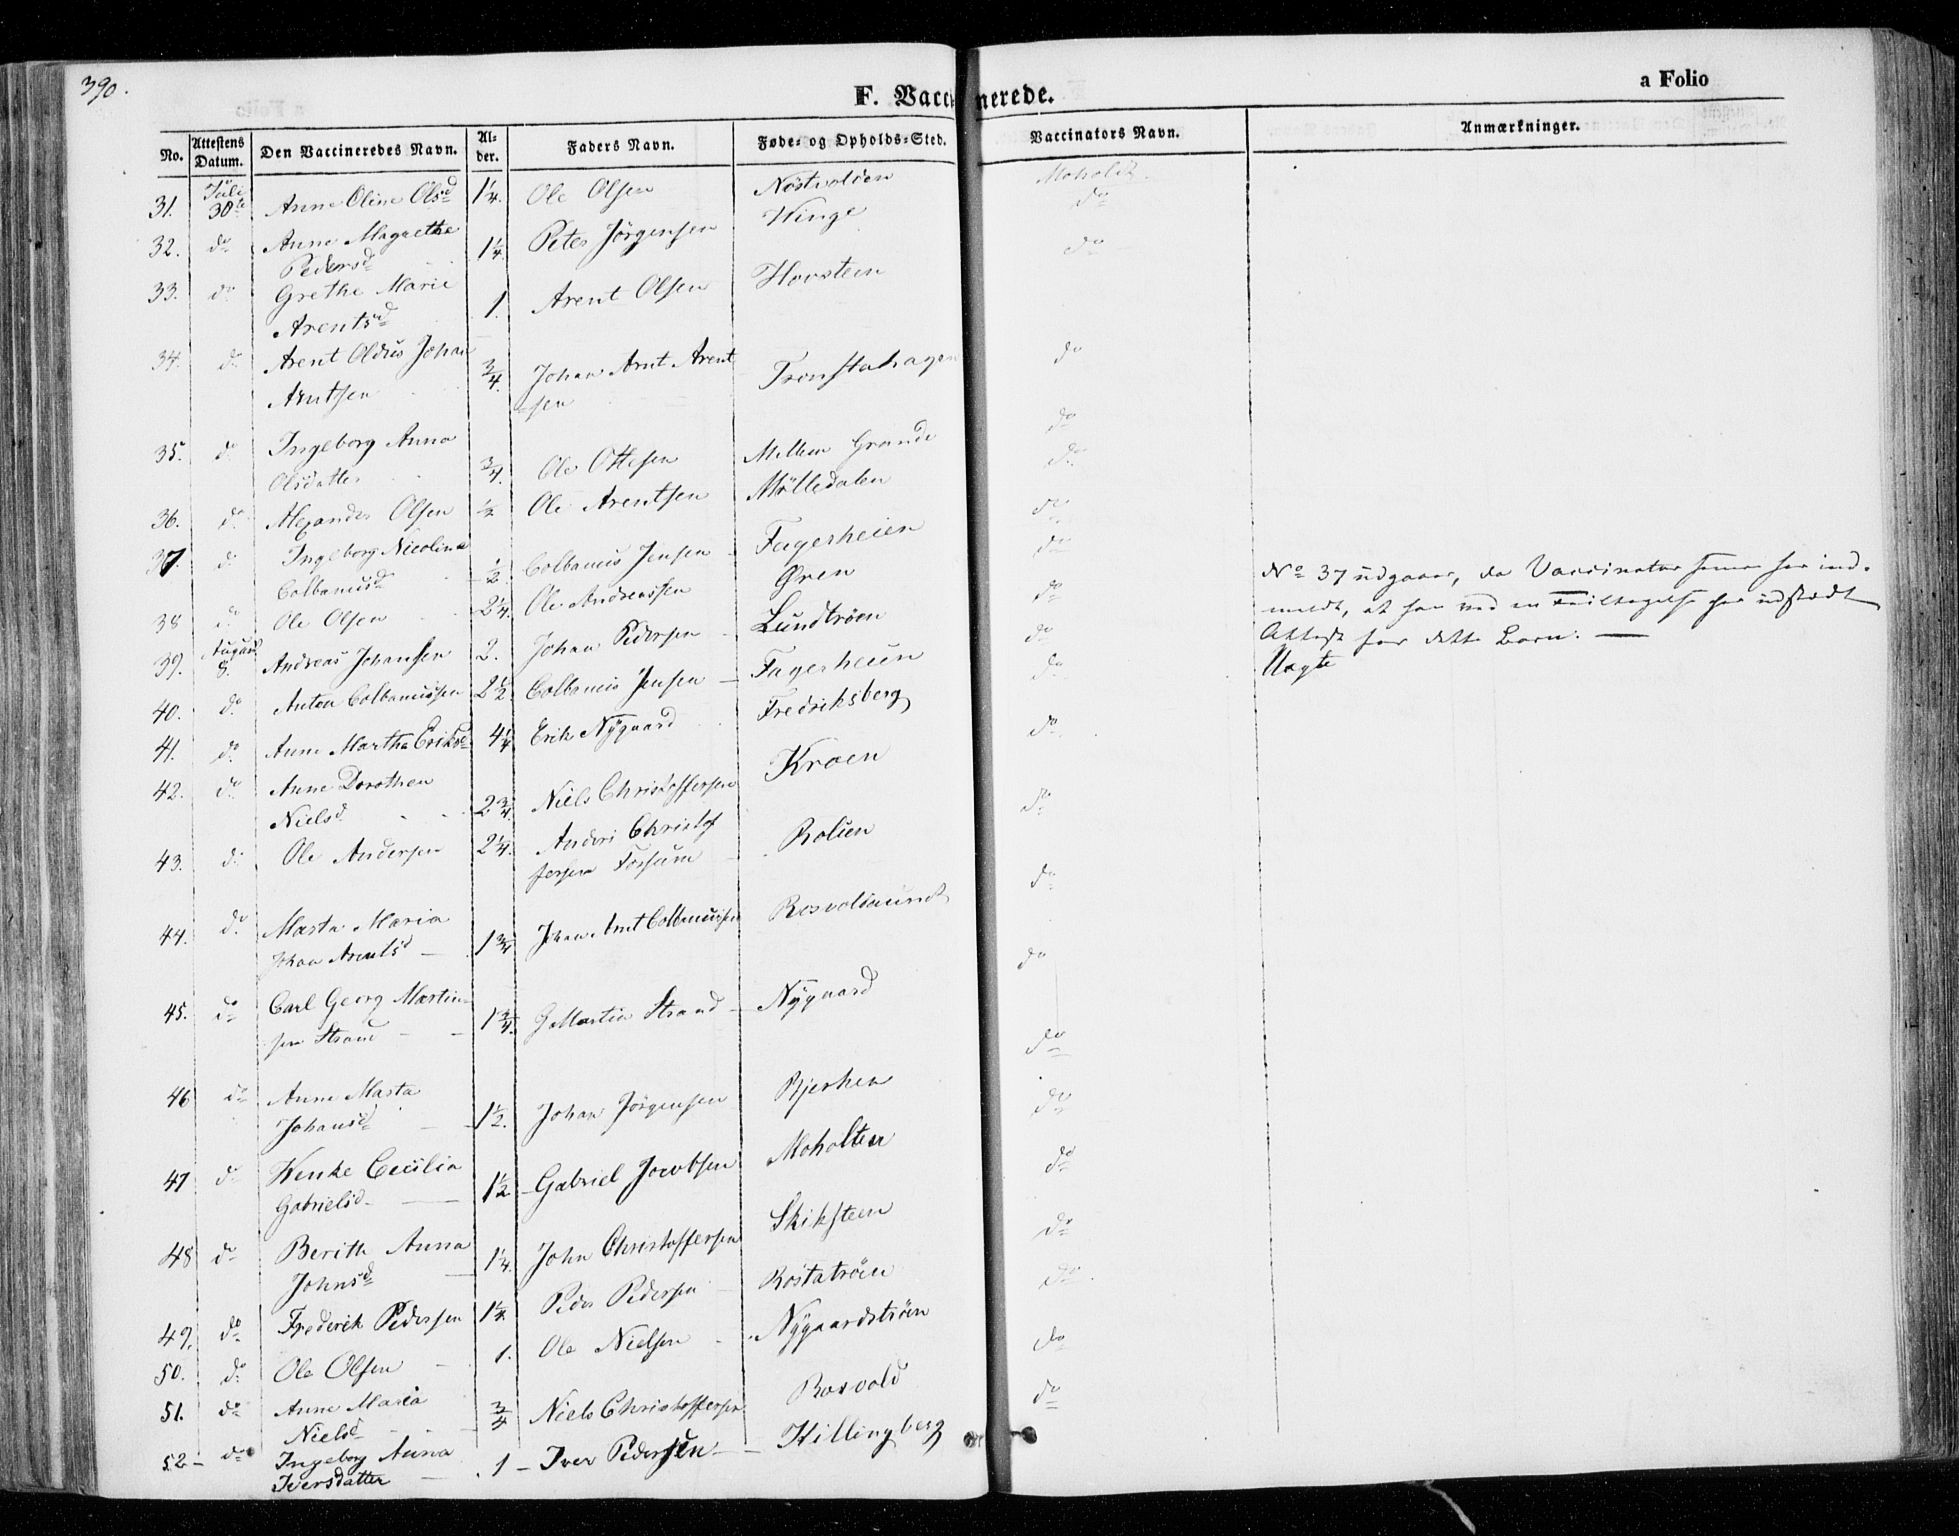 390.
F. Vaccinerede.
a Folio
No. Attestens Datum. Den Vaccineredes Navn. Al-der. Faders Navn. Føde- og Opholds-Sted. Vaccinators Navn. Anmærkninger.
31. Juli 30te Anne Oline Olsd 1¼. Ole Olsen Nøstvolden Moholdt.
do
32. do Anne Magrethe 1¼. Peter Jørgensen Winge do
Pedersd
33. do Grethe Marie 1. Arent Olsen Hovsteen
Arentsd
34. do Arent Oldus Johan ¾. Johan Arnt Arent Tronstahagen do
Arntsen -sen
35. do Ingeborg Anna ¾. Ole Ottesen Mellem Grande do
Olsdatter
36. do Alexander Olsen ½ Ole Arentsen Mölledalen do
37. do Ingeborg Nicolina ½. Colbanus Jensen Fagerheien do
Colbanusd
38 do Ole Olsen 2¼. Ole Andreassen Øren do
39. August 8. Andreas Johansen 2. Johan Pedersen Lundtröen do
40. do Anton Colbanussen 2½ Colbanus Jensen Fagerheien do
41. do Anne Martha Eriksd 4¼ Erik Nÿgaard Fredriksberg do
42. do Anne Dorothea 2¾. Niels Christoffersen Kroen do
Nielsd.
43. do Ole Andersen 2¼. Anders Christof Rolien do
fersen Fossum
44. do Marta Maria 1¾ Johan Arnt Colbanussen Rosvoldaunet do
Johan Arentsd
45. do Carl Georg Martin- 1¾. G Martin Strand Nÿgaard do
sen Strand
46 do Anne Marta 1½. Johan Jörgensen Bjerken do
Johansd
47 do Wenke Cecilia 1½ Gabriel Jacobsen Moholten do
Gabrielsd
48 do Berith Anna 1¼. John Christoffersen Skiksteen do
Johnsd
49. do Frederik Pedersen 1¼ Peder Pedersen Rostatröen do
50. do Ole Olsen 1. Ole Nielsen Nÿgaardströen do
51. do Anne Maria ¾ Niels Christoffersen Rosvold do
Nielsd
52 do Ingeborg Anna 1 Iver Pedersen Killingberg
Iversdatter
No 37 udgaaer, da Vaccinator senere har ind-
meldt, at han ved en Feiltagelse har udstædt
Attest for dette Barn.
Uægte